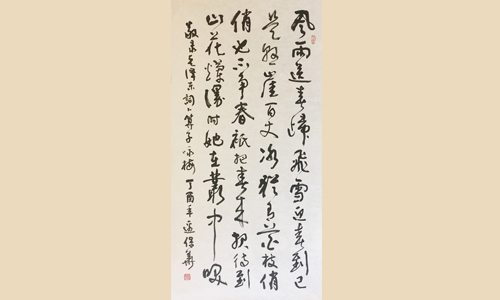 風雨送春歸飛雪迎春到已
是懸崖百丈冰猶有花枝俏
俏也不争春祇把春來報待到
山花爛漫時她在叢中咲
敬录毛澤东詞卜算子咏梅 丁酉年 保華